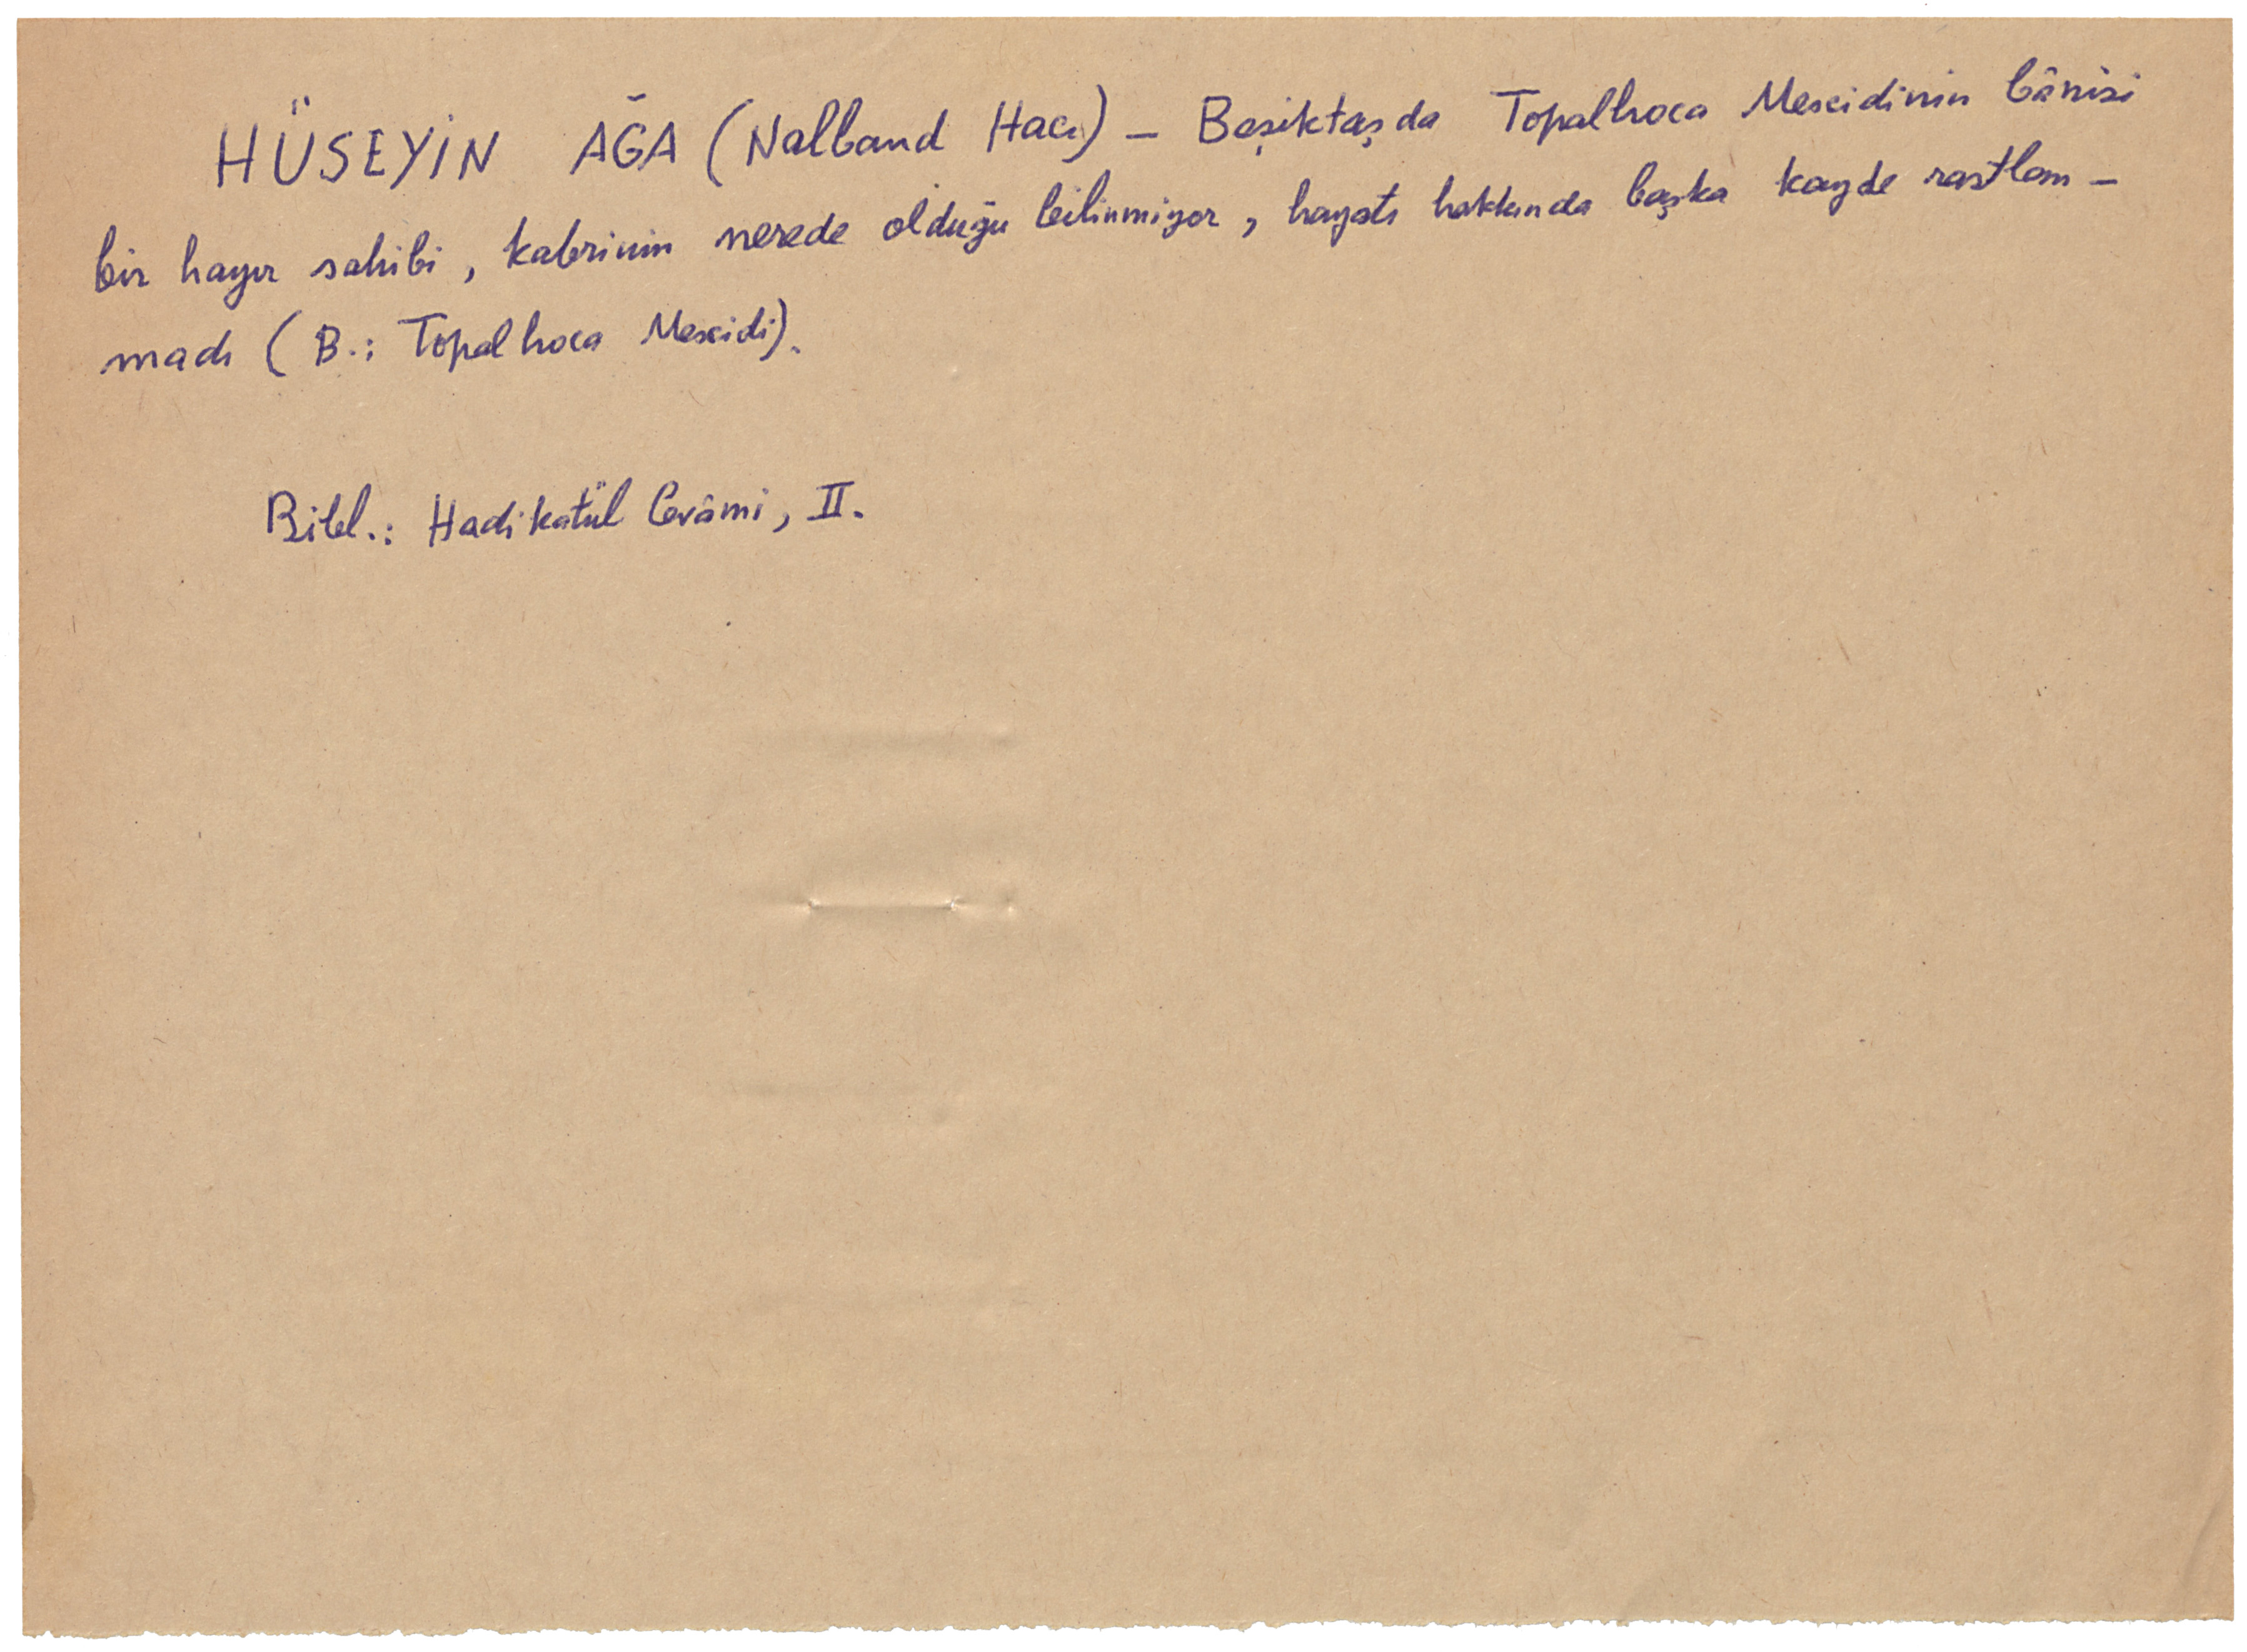 HÜSEYİN AĞA (Nalband Hacı) — Beşiktaşda Topalhoca Mescidinin bânisi
bir hayır sahibi, kabrinin nerede olduğu bilinmiyor, hayatı hakkında başka kayde rastlan-
madı (B.: Topalhoca Mescidi).
Bibl.: Hadikatül Cevâmi, II.